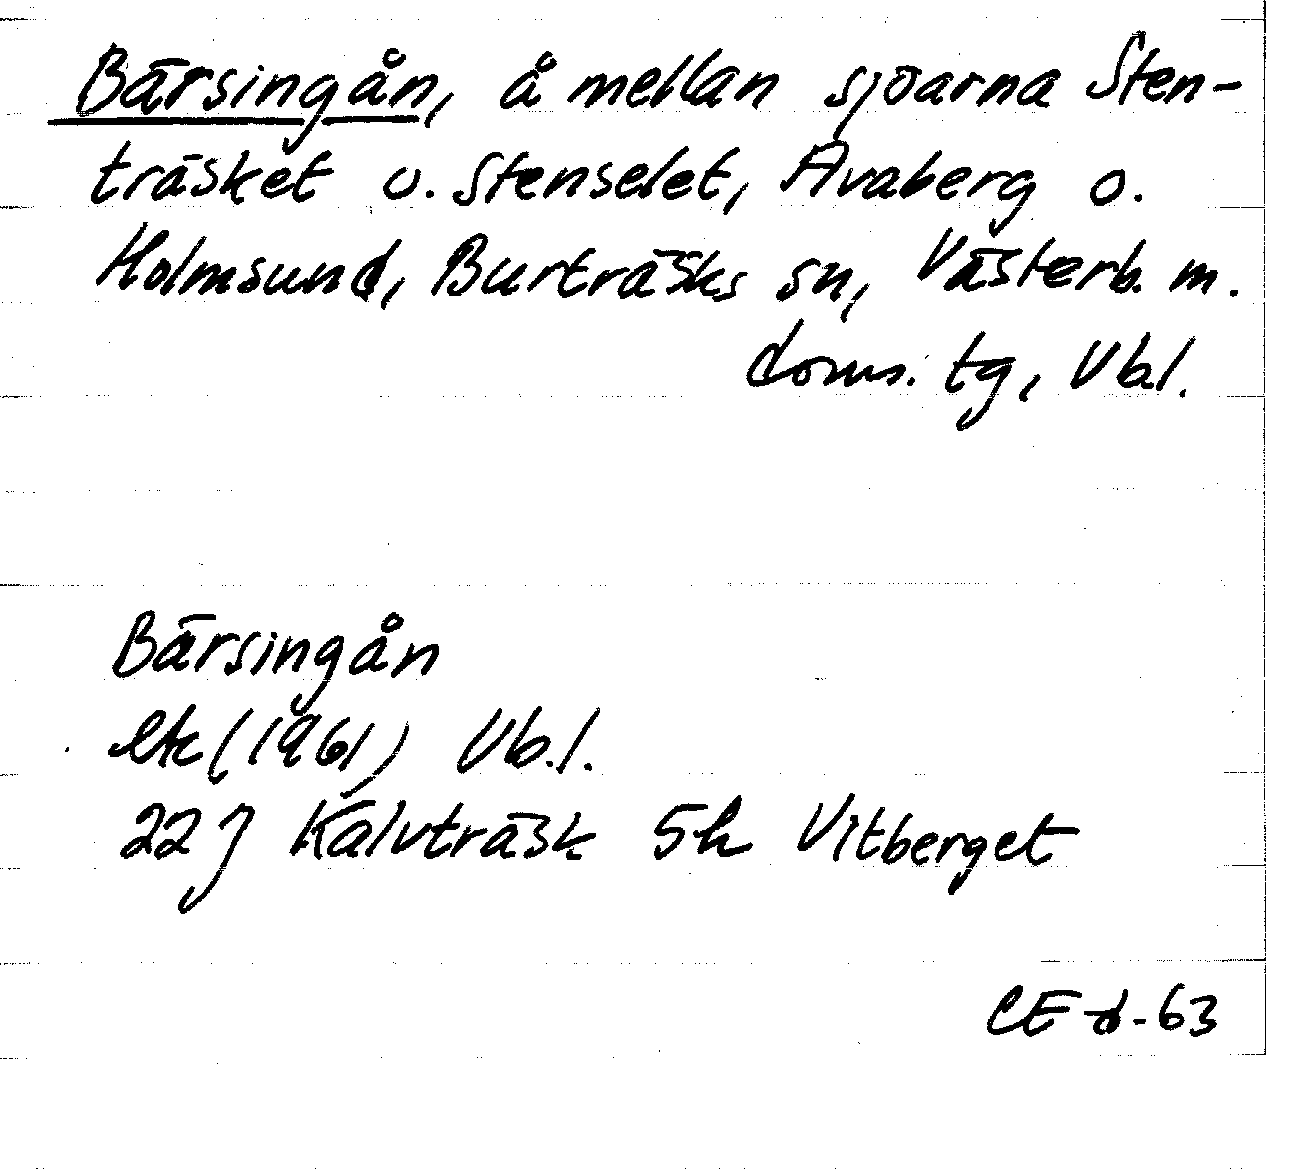 Bärsingån, å mellan sjöarna Sten-
träsket o. Stenselet, Avaberg o.
Holmsund, Burträsks sn, Västerb. m.
doms. tg, Vb.l.
Bärsingån
ek (1961) Vb.l.
22 J Kalvträsk 5h Vitberget
CE d-63